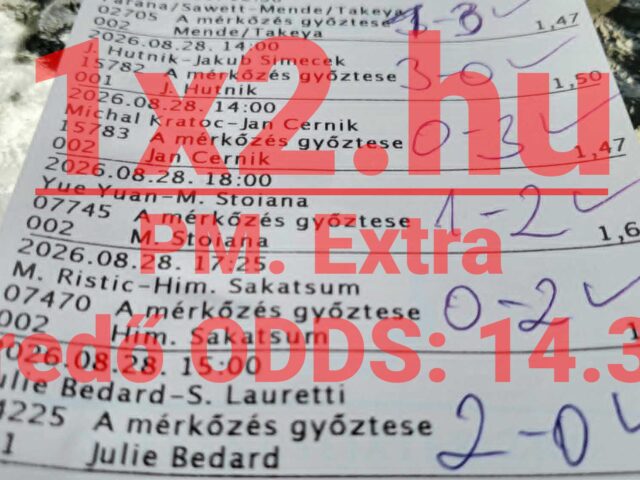 Farana/Sawett-Mende/Takeya
02705 A mérkőzés győztese 1-3
002 Mende/Takeya 1,47
2026.08.28. 14:00
J. Hutnik-Jakub Simecek
15782 A mérkőzés győztese 3-0
001 J. Hutnik 1,50
2026.08.28. 14:00
Michal Kratoc-Jan Cernik
15783 A mérkőzés győztese 0-3
002 Jan Cernik 1,47
2026.08.28. 18:00
Yue Yuan-M. Stoiana
07745 A mérkőzés győztese 1-2
002 M. Stoiana 1,6
2026.08.28. 17:25
M. Ristic-Him. Sakatsum
07470 A mérkőzés győztese 0-2
002 Him. Sakatsum 1
2026.08.28. 15:00
Julie Bedard-S. Lauretti
4225 A mérkőzés győztese 2-0
1 Julie Bedard
1x2.hu
PM. Extra
redő ODDS: 14.3